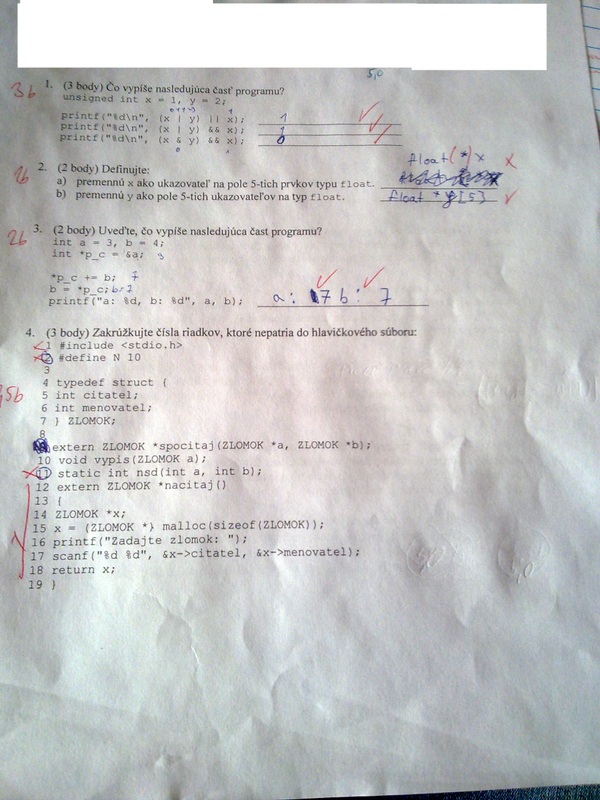 5,0
3b 1. (3 body) Čo vypíše nasledujúca časť programu?
unsigned int x = 1, y = 2;
printf("%d\n", (x | y) || x); 1
printf("%d\n", (x | y) && x); 1
printf("%d\n", (x & y) && x); 0
0 1
2. (2 body) Definujte:
float(*)x
a) premennú x ako ukazovateľ na pole 5-tich prvkov typu float.
b) premennú y ako pole 5-tich ukazovateľov na typ float. float *y[5]
2b 3. (2 body) Uveďte, čo vypíše nasledujúca časť programu?
int a = 3, b = 4;
int *p_c = &a; 3
*p_c += b; 7
b = *p_c; b=7
printf("a: %d, b: %d", a, b); a: 7 b: 7
4. (3 body) Zakrúžkujte čísla riadkov, ktoré nepatria do hlavičkového súboru:
1 #include <stdio.h>
2 #define N 10
3
4 typedef struct {
5 int citatel;
6 int menovatel;
7 } ZLOMOK;
8
9 extern ZLOMOK *spocitaj(ZLOMOK *a, ZLOMOK *b);
10 void vypis(ZLOMOK a);
11 static int nsd(int a, int b);
12 extern ZLOMOK *nacitaj()
13 {
14 ZLOMOK *x;
15 x = (ZLOMOK *) malloc(sizeof(ZLOMOK));
16 printf("Zadajte zlomok: ");
17 scanf("%d %d", &x->citatel, &x->menovatel);
18 return x;
19 }